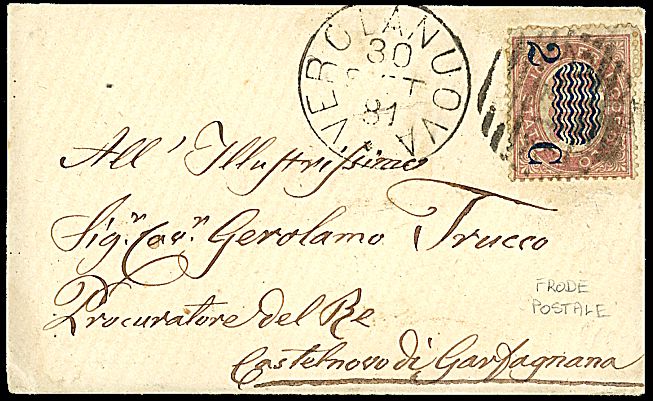 VEROLANUOVA
30
SET
81
2 C
All' Illustrissimo
Sig.r Cav.r Gerolamo Trucco
Procuratore del Re
FRODE
POSTALE
Castelnovo di Garfagnana